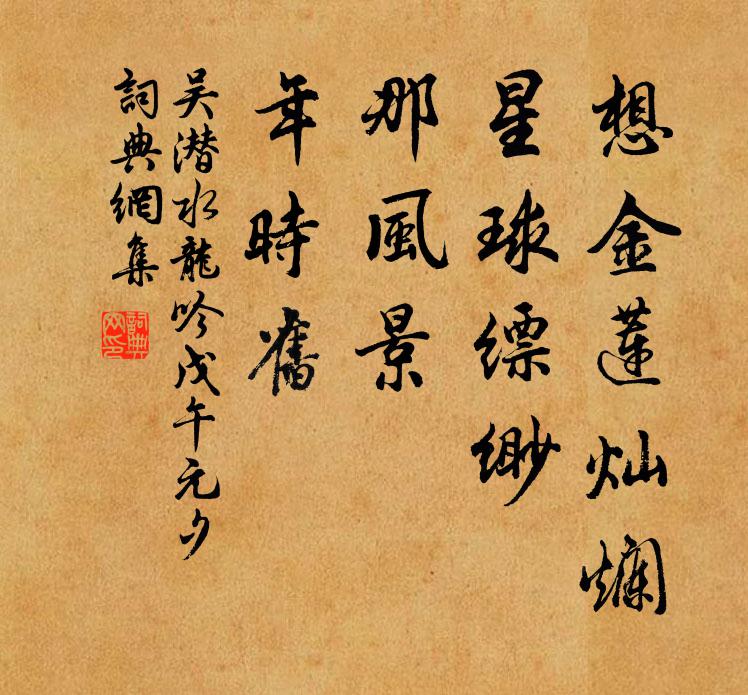 想金蓮灿爛
星球縹緲
那風景
年時舊
吴潛水龍吟戊午元夕
詞典網集
詞典网印